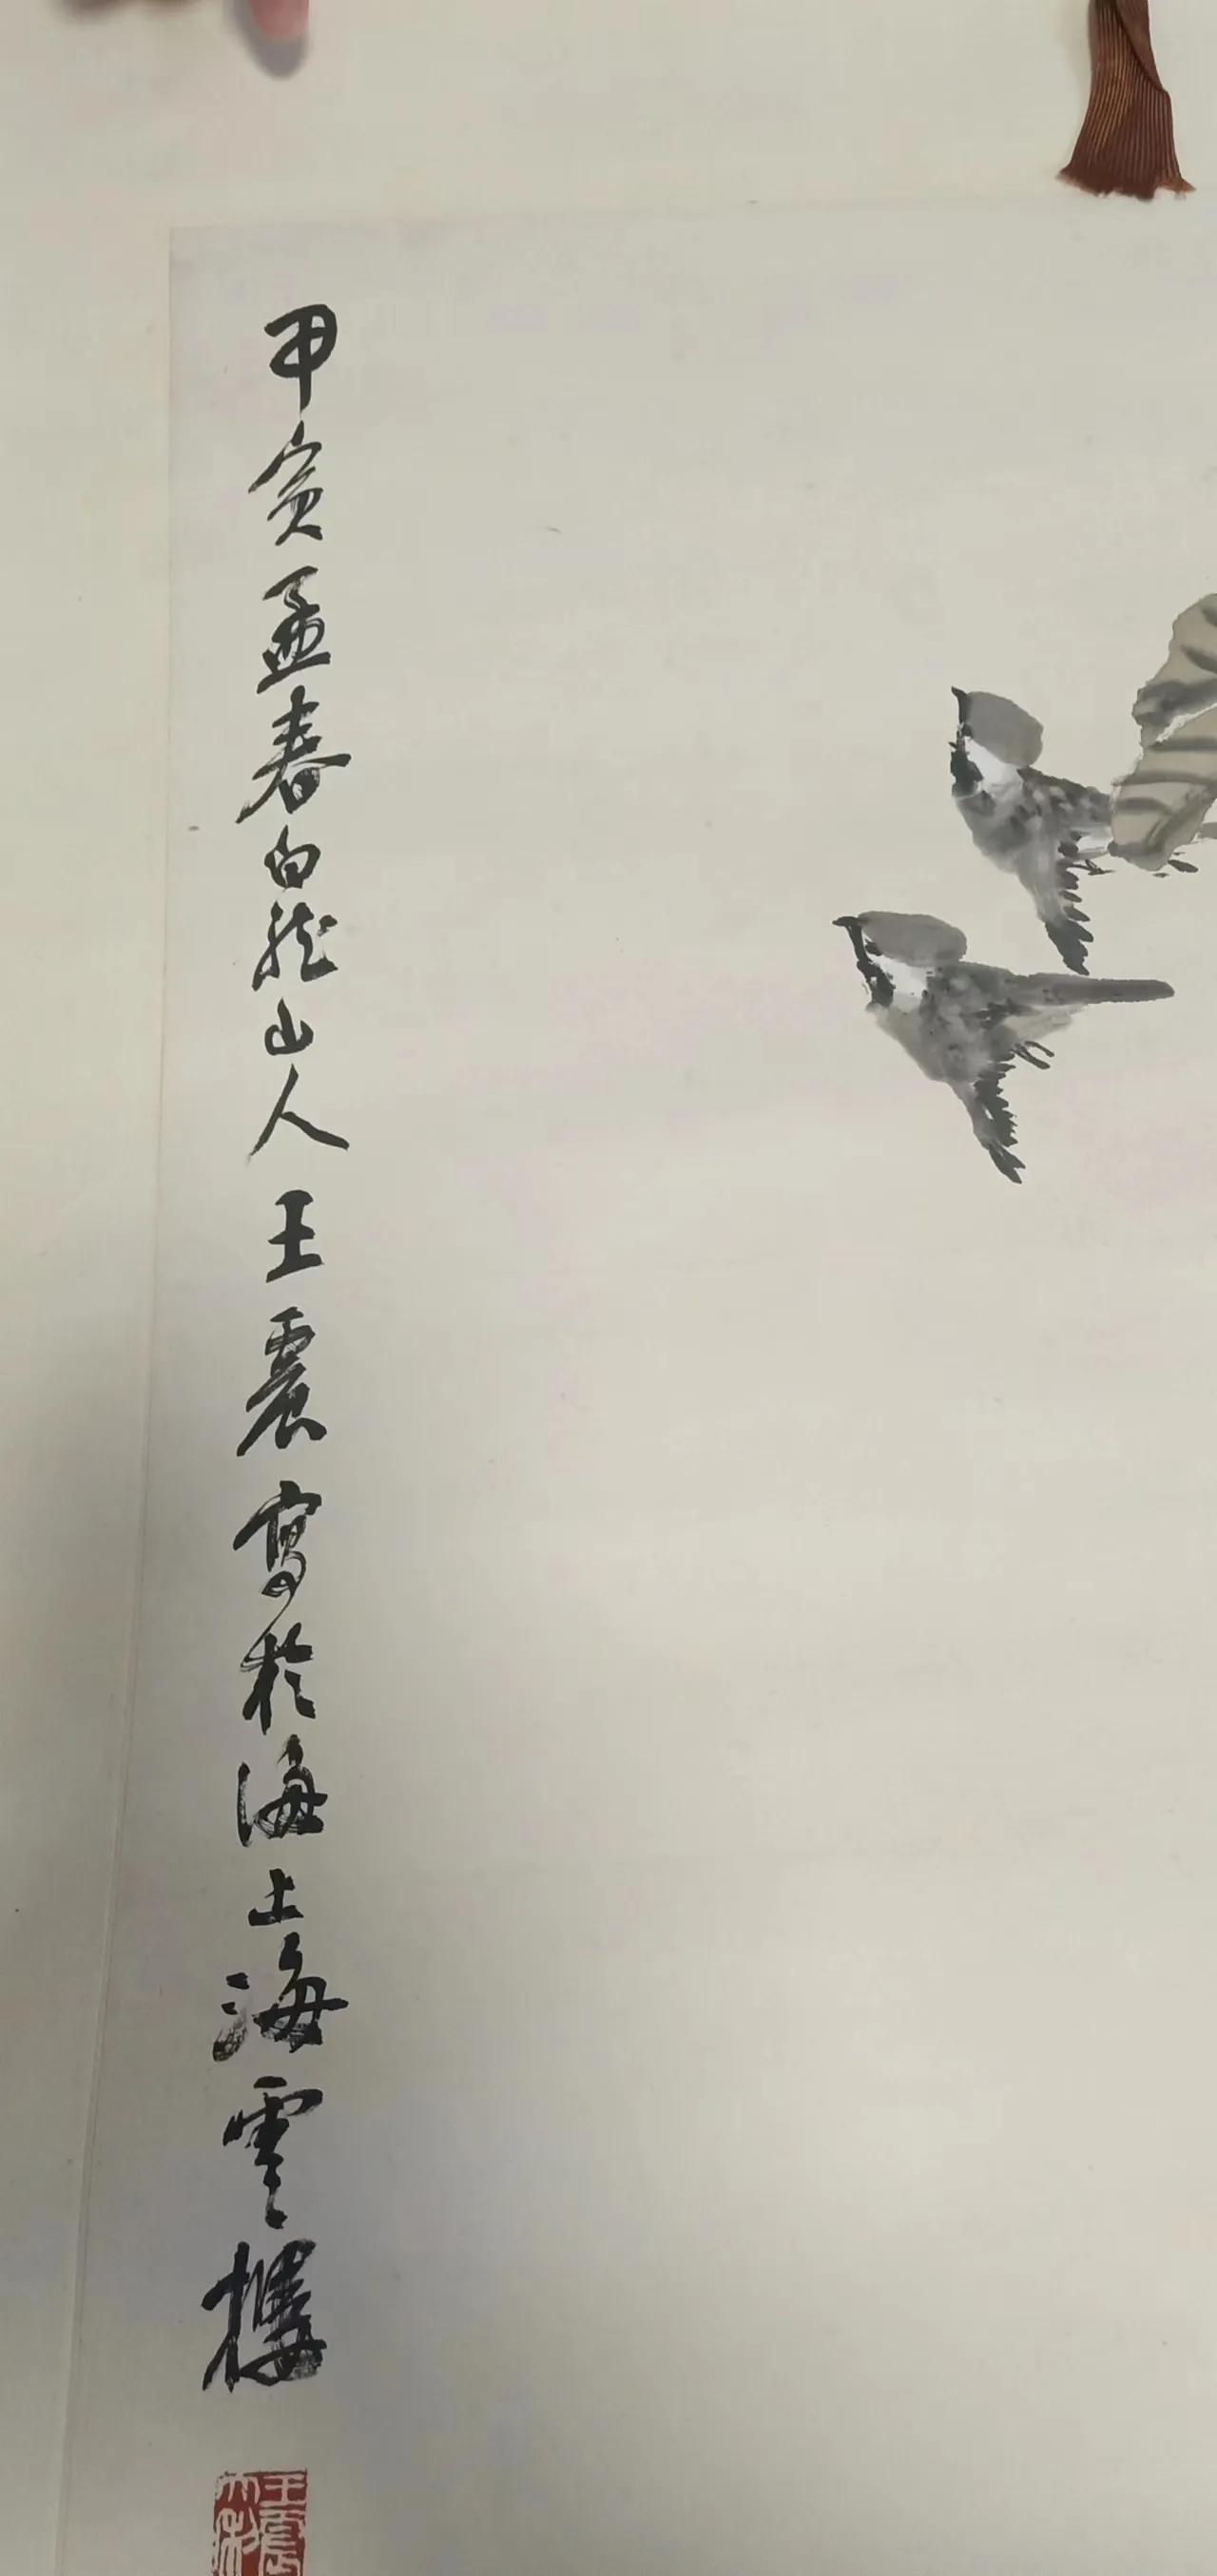 甲寅孟春白龍山人王震寫於海上海雲樓
王震大利